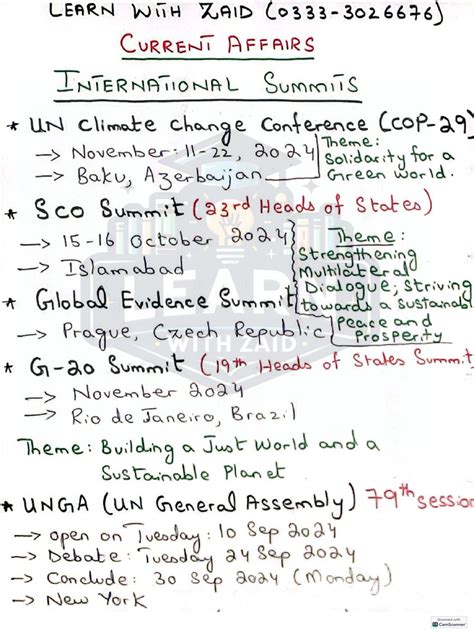 LEARN WITH ZAID (0333-3026676)
CURRENT AFFAIRS
INTERNATIONAL SUMMITS
* UN Climate Change Conference (COP-29)
→ November: 11-22, 2024
→ Baku, Azerbaijan
Theme:
Solidarity for a
Green World.
* SCO Summit (23rd Heads of States)
→ 15-16 October 2024
→ Islamabad
Theme:
Strengthening
Multilateral
Dialogue; Striving
towards a Sustainable
Peace and
Prosperity
* Global Evidence Summit
→ Prague, Czech Republic
* G-20 Summit (19th Heads of States Summit
→ November 2024
→ Rio de Janeiro, Brazil
Theme: Building a Just World and a
Sustainable Planet
* UNGA (UN General Assembly) 79th session
→ open on Tuesday: 10 Sep 2024
→ Debate: Tuesday 24 Sep 2024
→ Conclude: 30 Sep 2024 (Monday)
→ New York
LEARN
WITH ZAID
Scanned with
CS CamScanner